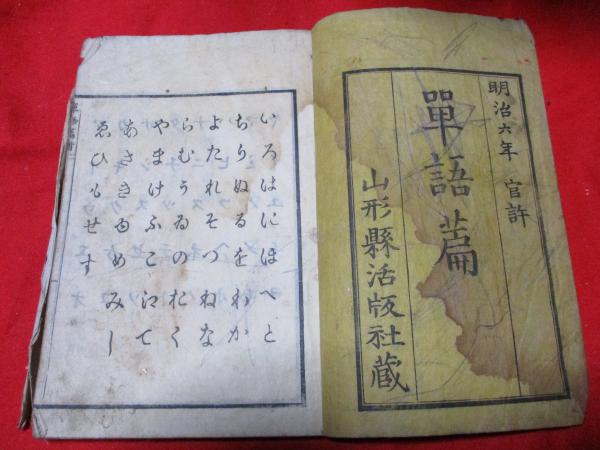 明治六年 官許
單語篇
山形縣活版社蔵
いろはにほへと
ちりぬるをわか
よたれそつねな
らむうゐのおく
やまけふこえて
あさきゆめみし
ゑひもせす